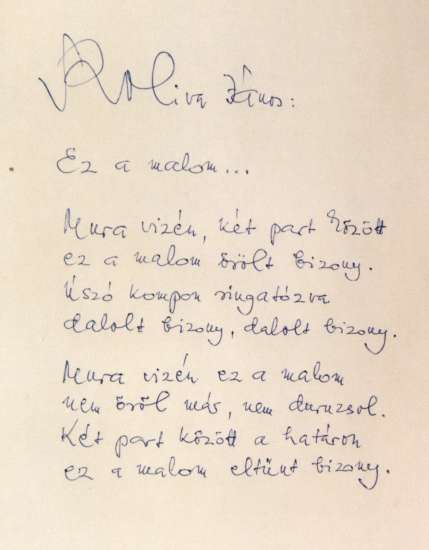 Oliva János:
Ez a malom...
Mura vizén, két part között
ez a malom őrölt bizony.
Úszó kompon ringatózva
dalolt bizony, dalolt bizony.
Mura vizén ez a malom
nem őröl más, nem duruzsol.
Két part között a határon
ez a malom eltünt bizony.